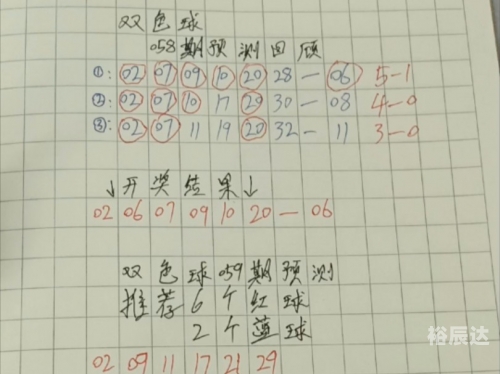 双色球
058期预测回顾
①: 02 07 09 10 20 28 — 06 5-1
②: 02 07 10 17 20 30 — 08 4-0
③: 02 07 11 19 20 32 — 11 3-0
↓开奖结果↓
02 06 07 09 10 20 — 06
双色球059期预测
推荐6个红球
2个蓝球
02 09 11 17 21 29
裕辰达